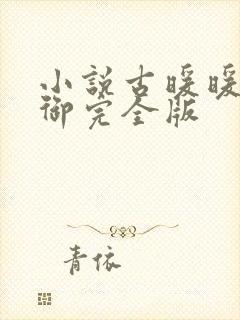 小說古暖暖
御完全版
青依